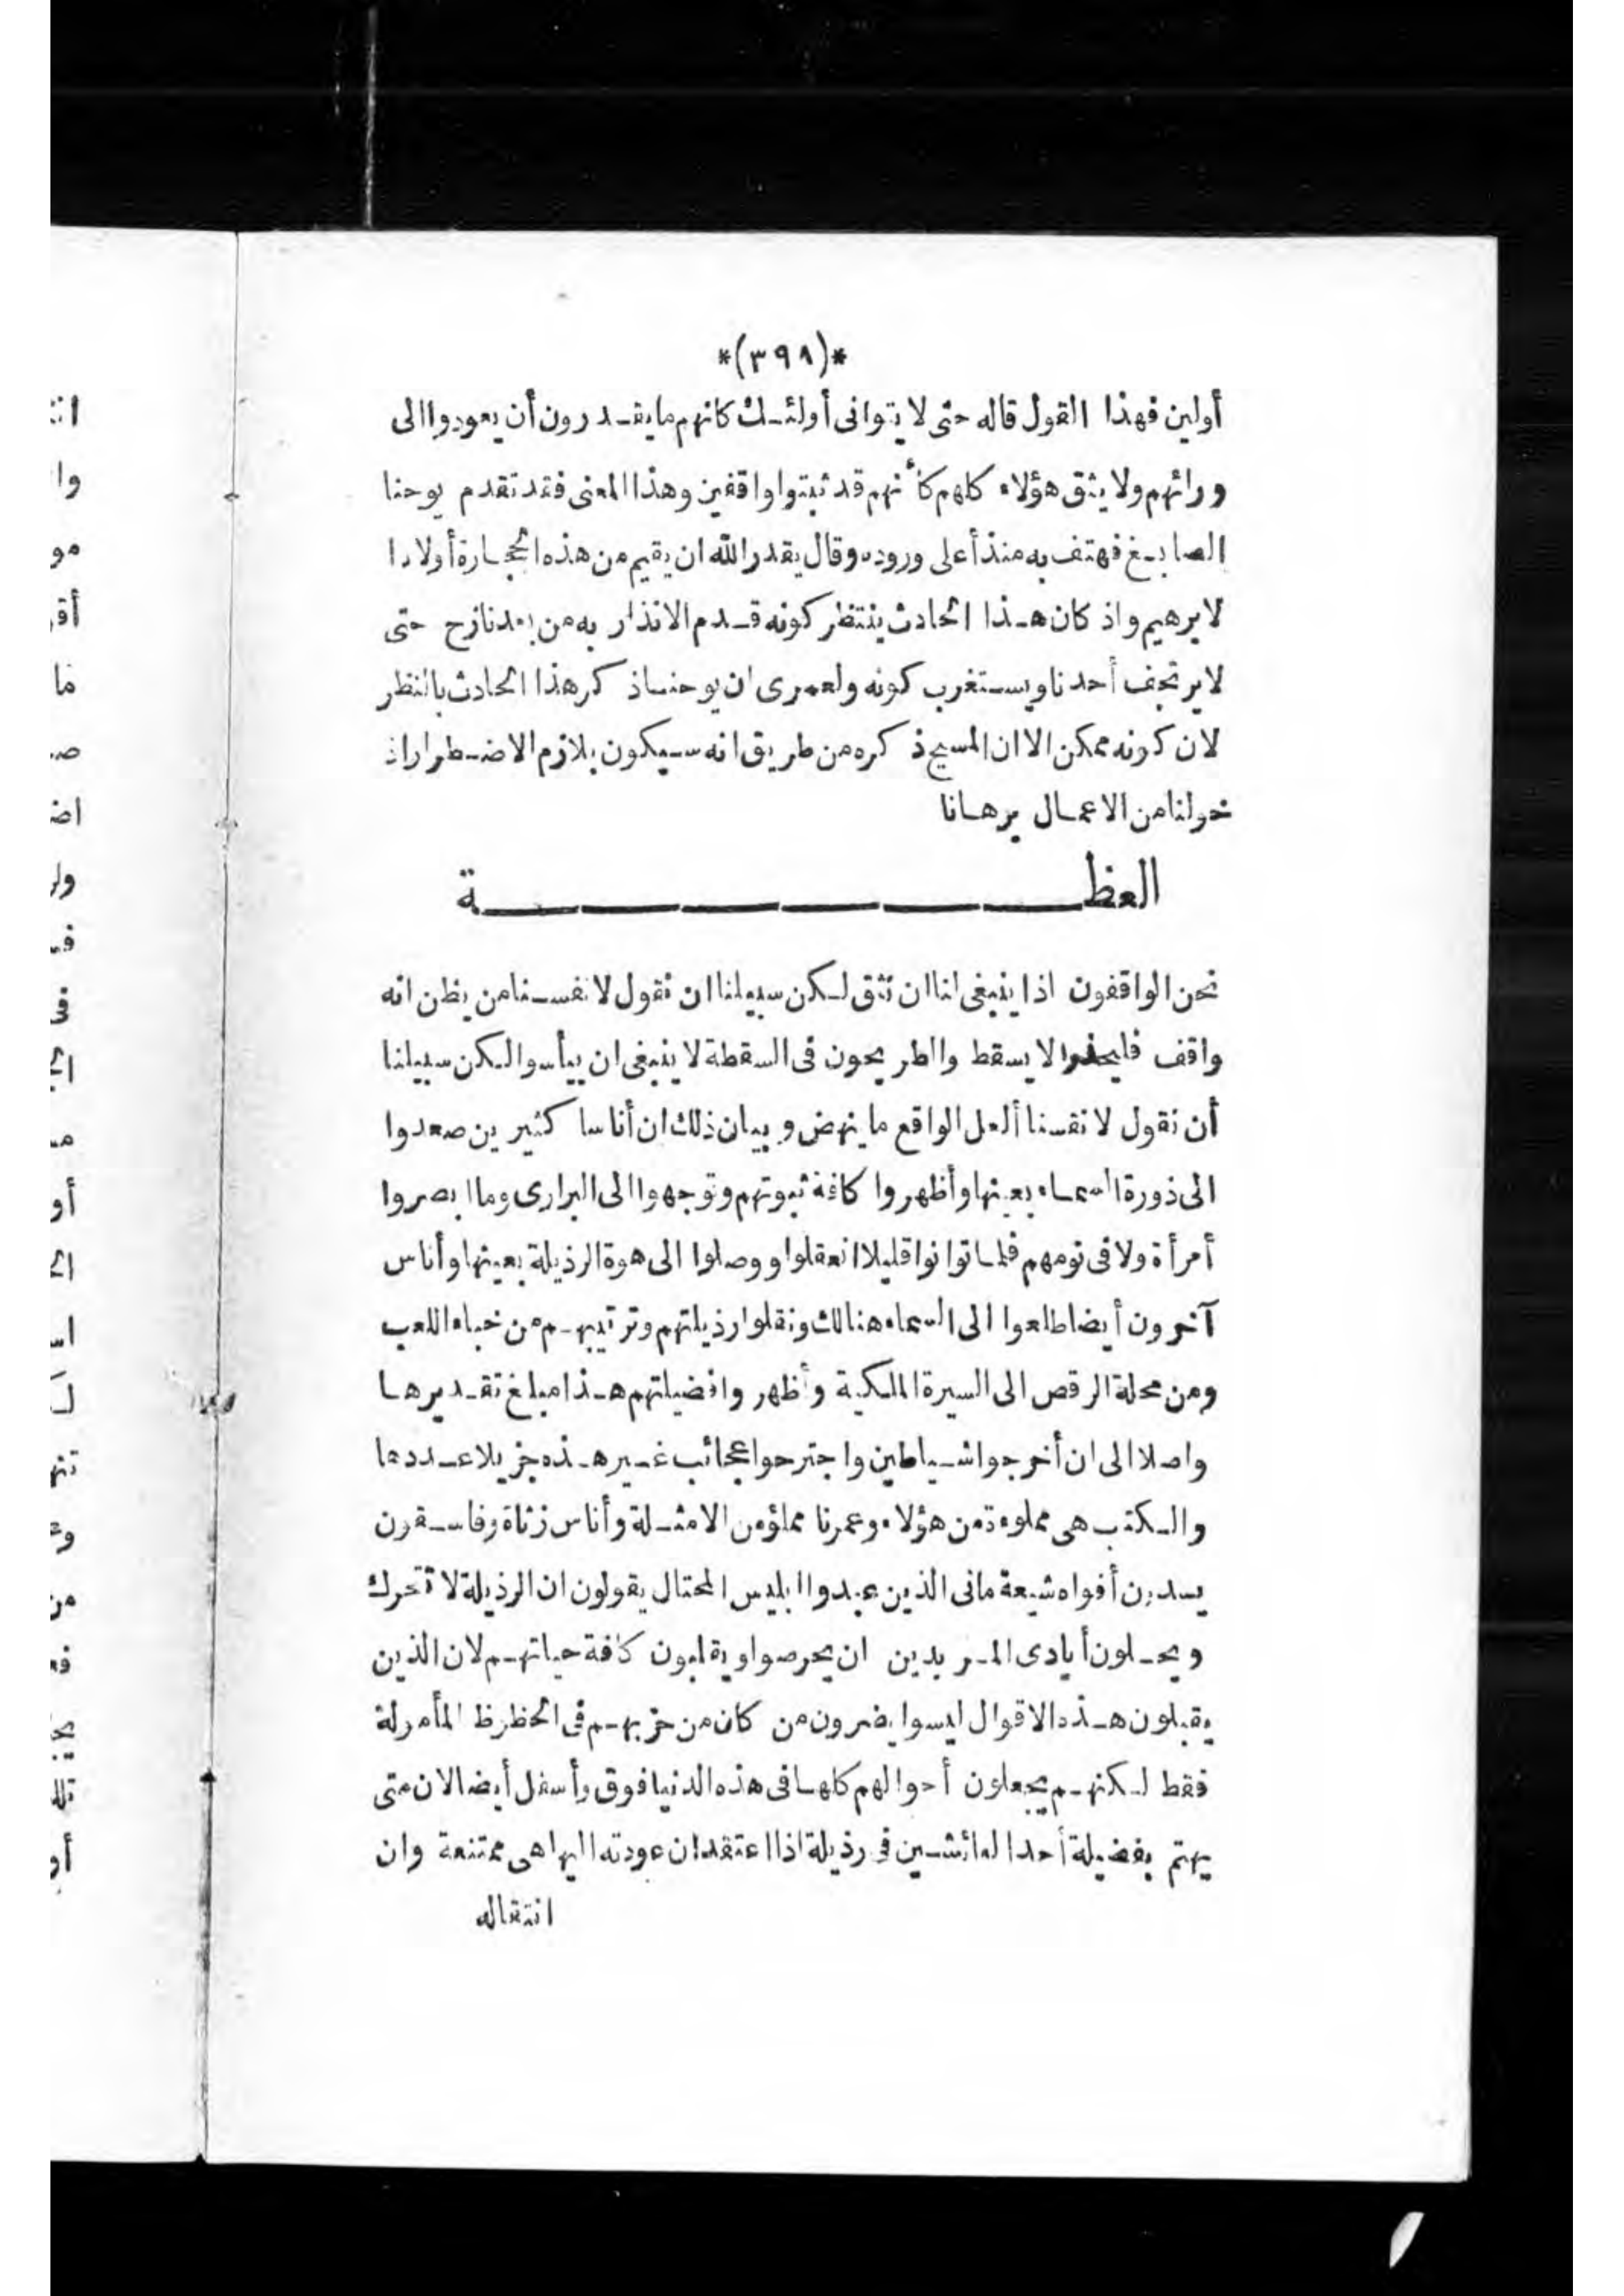 *(٣٩٨)*
أولين فهذا القول قاله حتى لا يتوانى أولئك كانهم ما يقدرون أن يعودوا الى
ورائهم ولا يثق هؤلاء كلهم كأنهم قد ثبتوا واقفين وهذا المعنى فقد تقدم يوحنا
الصابغ فهتف به منذ أعلى وروده وقال يقدر الله ان يقيم من هذه الحجارة أولادا
لابرهيم واذ كان هذا الحادث ينتظر كونه قدم الانذار به من بعد نازح حتى
لا يرتجف أحدنا ويستغرب كونه ولعمرى ان يوحنا ذكر هذا الحادث بالنظر
لان كونه ممكن الا ان المسيح ذكره من طريق انه سيكون بلازم الاضطرار اذ
خولنا من الاعمال برهانا
العظة
نحن الواقفون اذا ينبغى لنا ان نثق لكن سبيلنا ان نقول لانفسنا من يظن انه
واقف فليحذر الا يسقط والطريحون فى السقطة لا ينبغى ان ييأسوا لكن سبيلنا
أن نقول لانفسنا ألعل الواقع ما ينهض وبيان ذلك ان أناسا كثيرين صعدوا
الى ذورة السماء بعينها وأظهروا كافة ثبوتهم وتوجهوا الى البرارى وما ابصروا
أمرأة ولا فى نومهم فلما توانوا قليلا انعقلوا ووصلوا الى هوة الرذيلة بعينها وأناس
آخرون أيضا طلعوا الى السماء هنالك ونقلوا رذيلتهم وترتيبهم من خباء اللعب
ومن محلة الرقص الى السيرة الملكية وأظهروا فضيلتهم هذا مبلغ تقديرها
واصلا الى ان أخرجوا شياطين واجترحوا عجائب غير هذه جزيلا عددها
والكتب هى مملوءة من هؤلاء وعمرنا مملؤ من الامثلة وأناس زناة وفاسقون
يسدون أفواه شيعة مانى الذين عبدوا ابليس المحتال يقولون ان الرذيلة لا تتحرك
ويحلون أيادى المريدين ان يحرصوا ويقلبون كافة حياتهم لان الذين
يقبلون هذه الاقوال ليسوا يضرون من كان من حزبهم فى الحظوظ المأمولة
فقط لكنهم يجعلون أحوالهم كلها فى هذه الدنيا فوق وأسفل أيضا لان متى
يهتم بفضيلة أحد العائشين فى رذيلة اذا اعتقد ان عودته اليها هى ممتنعة وان
انتقاله